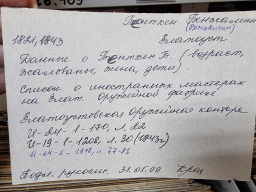 Тонтхен Бенжамин
(Вениамин)
1821, 1843 Златоуст
Данные о Тонтхен Б. (возраст,
жалованье, жена, дети)
Список о иностранных мастерах
на Злат. Оружейной фабрике.
Златоустовская Оружейная контора
И-24-1-170, л. 22
И-19-1-1208, л. 30 (1843г.)
Подл., русский, 31.05.00